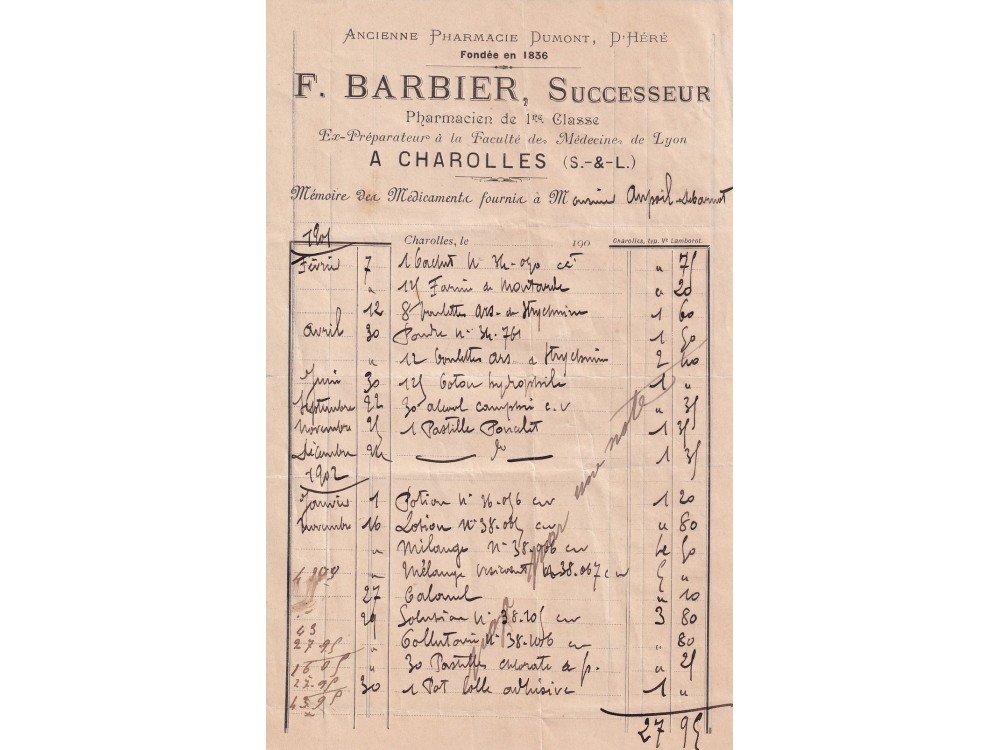 ANCIENNE PHARMACIE DUMONT, D'HÉRÉ
Fondée en 1836
F. BARBIER, SUCCESSEUR
Pharmacien de 1re Classe
Ex-Préparateur à la Faculté de Médecine de Lyon
A CHAROLLES (S.-&-L.)
Mémoire des Médicaments fournis à M
1901
Charolles, le 190
Charolles, typ. Vᵉ Lamborot.
Février 7 1 Cachet Nº cet " 75
" 125 Farine de Moutarde " 20
12 8 boulettes ars. de Strychnine 1 60
avril 30 Poudre Nº 34.761 1 50
" 12 boulettes ars. de Strychnine 2 40
Juin 30 125 Coton hydrophile 1 "
Septembre 22 30 alcool camphré c.v " 35
novembre 25 1 Pastille Poncelet 1 35
Décembre 24 do 1 35
1902
Janvier 1 Potion Nº 36.056 cv 1 20
novembre 16 Lotion Nº 38.065 cv " 80
" Mélange Nº 38.066 cv 50
" Mélange 38.067 cv 5 "
27 Calomel " 10
29 Solution Nº 38.205 cv 3 80
" Collutoire Nº 38.206 cv " 80
" 30 Pastilles chlorate de p. " 25
30 1 Pot Colle adhésive 1 "
27 95
une note
43
27 95
16 05
27 95
43 95